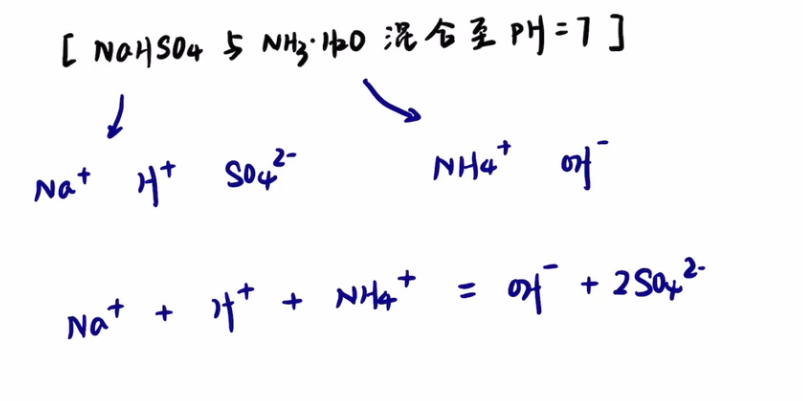 [ NaHSO4 与 NH3·H2O 混合至 PH=7 ]
Na⁺ H⁺ SO4²⁻ NH4⁺ OH⁻
Na⁺ + H⁺ + NH4⁺ = OH⁻ + 2SO4²⁻